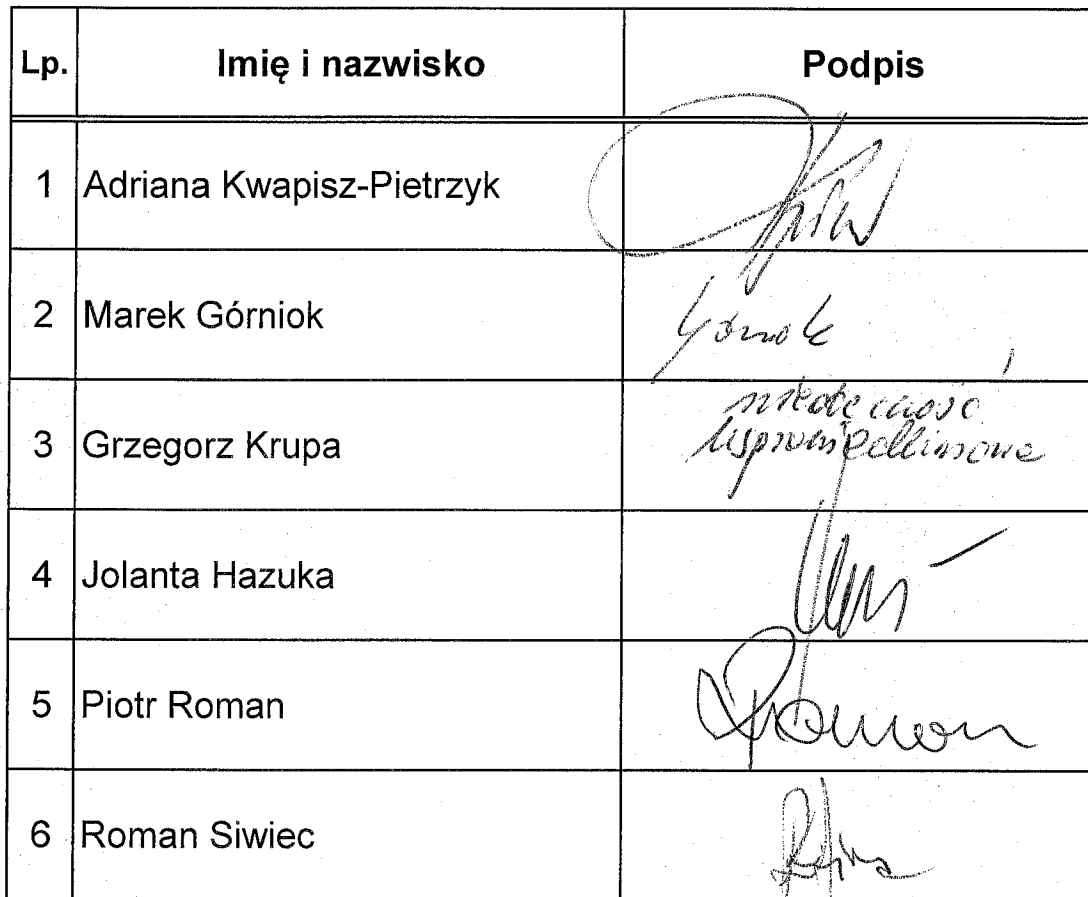 Lp. Imię i nazwisko Podpis
1 Adriana Kwapisz-Pietrzyk
2 Marek Górniok
3 Grzegorz Krupa nieobecność
usprawiedliwiona
4 Jolanta Hazuka
5 Piotr Roman PRoman
6 Roman Siwiec